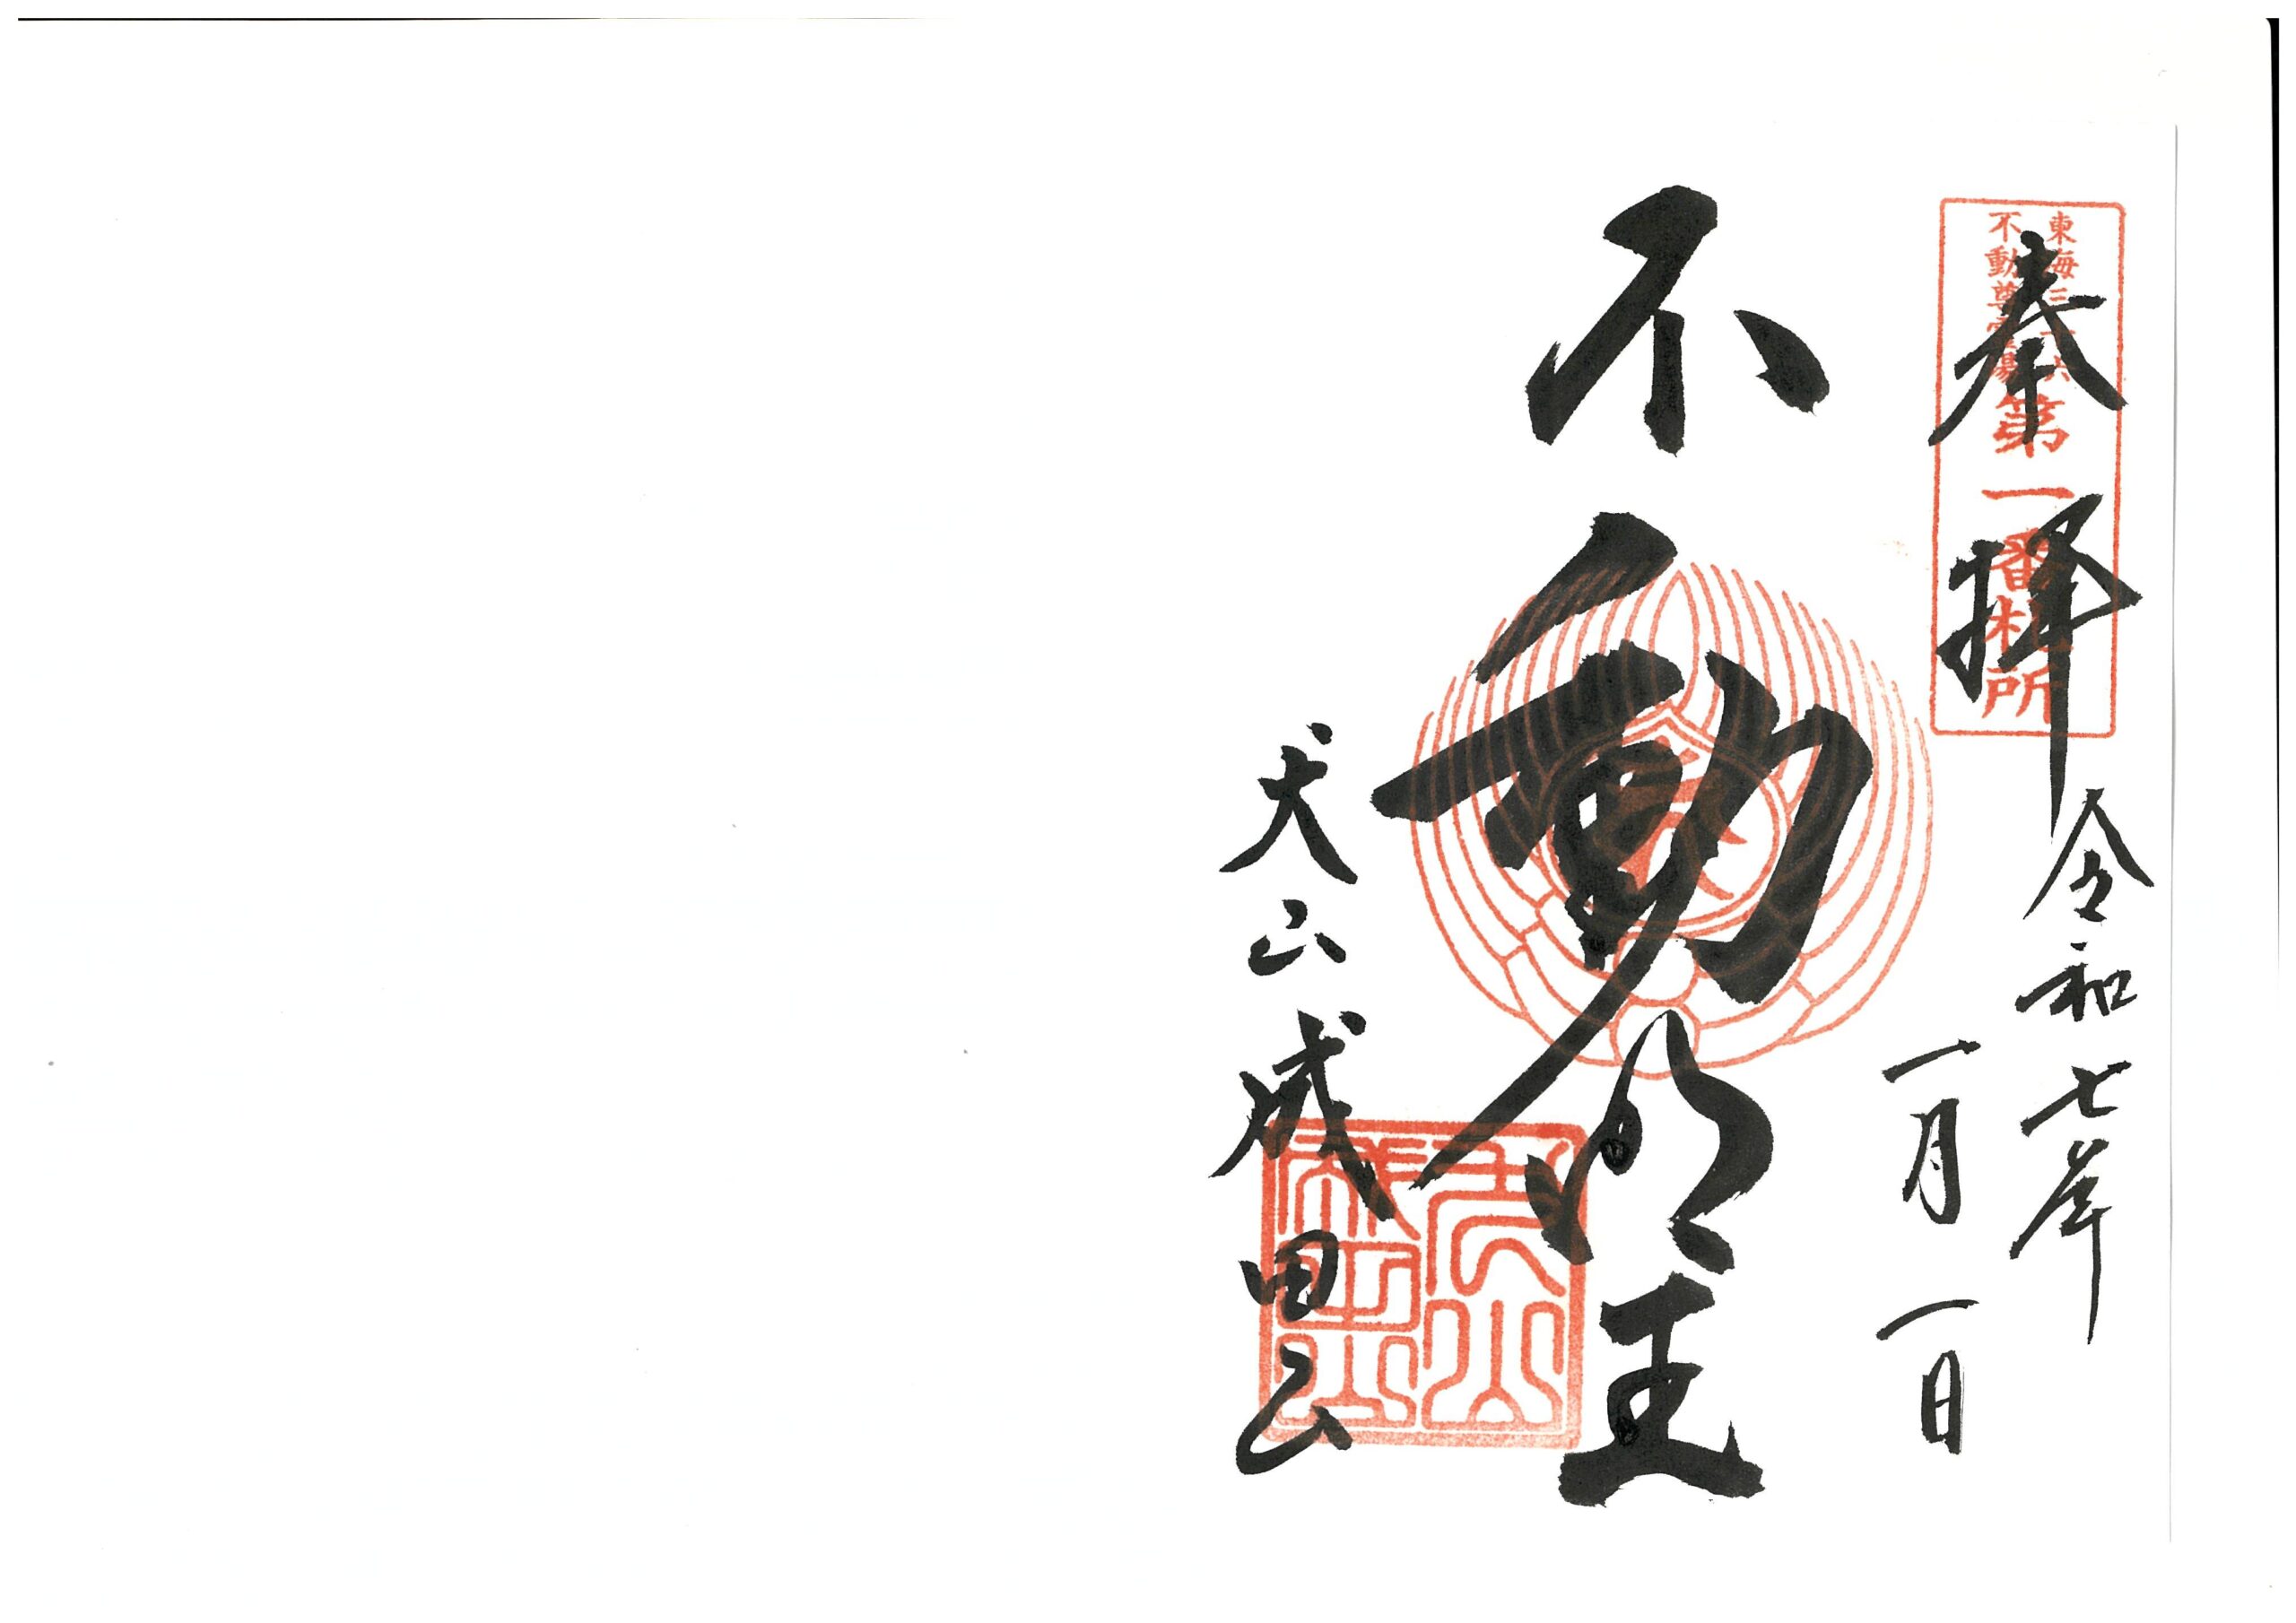 東海三十六
不動尊霊場
第一番札所
奉拝
令和七年
一月一日
不動明王
犬山成田山
犬山
成田山